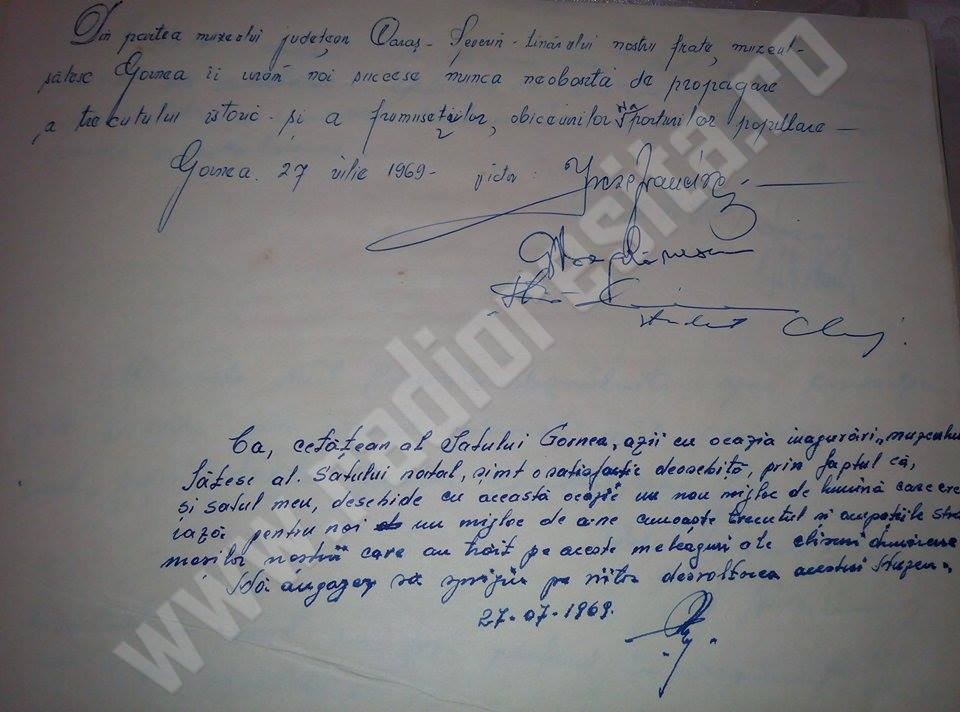 Din partea muzeului județean Caraș-Severin-tînărului nostru frate, muzeul-
sătesc Gornea îi urăm noi succese munca neobosită de propagare
a trecutului istoric și a frumuseților, obiceiurilor și porturilor populare —
Gornea. 27 iulie 1969 - pictor:
student Cluj.
Ca, cetățean al Satului Gornea, azii cu ocazia inagurări, muzeului
sătesc al. Satului natal, simt o satisfacție deosebită, prin faptul că,
și satul meu, deschide cu această ocazie un nou mijloc de lumină care cre
iază pentru noi un mijloc de a ne cunoaște trecutul și ocupațiile stră
moșilor noștrii care au trăit pe aceste meleaguri ale clisuri dunărene
Mă angajez să sprijin pe viitor dezvoltarea acestui Muzeu.
27-07-1969.
www.radioresita.ro